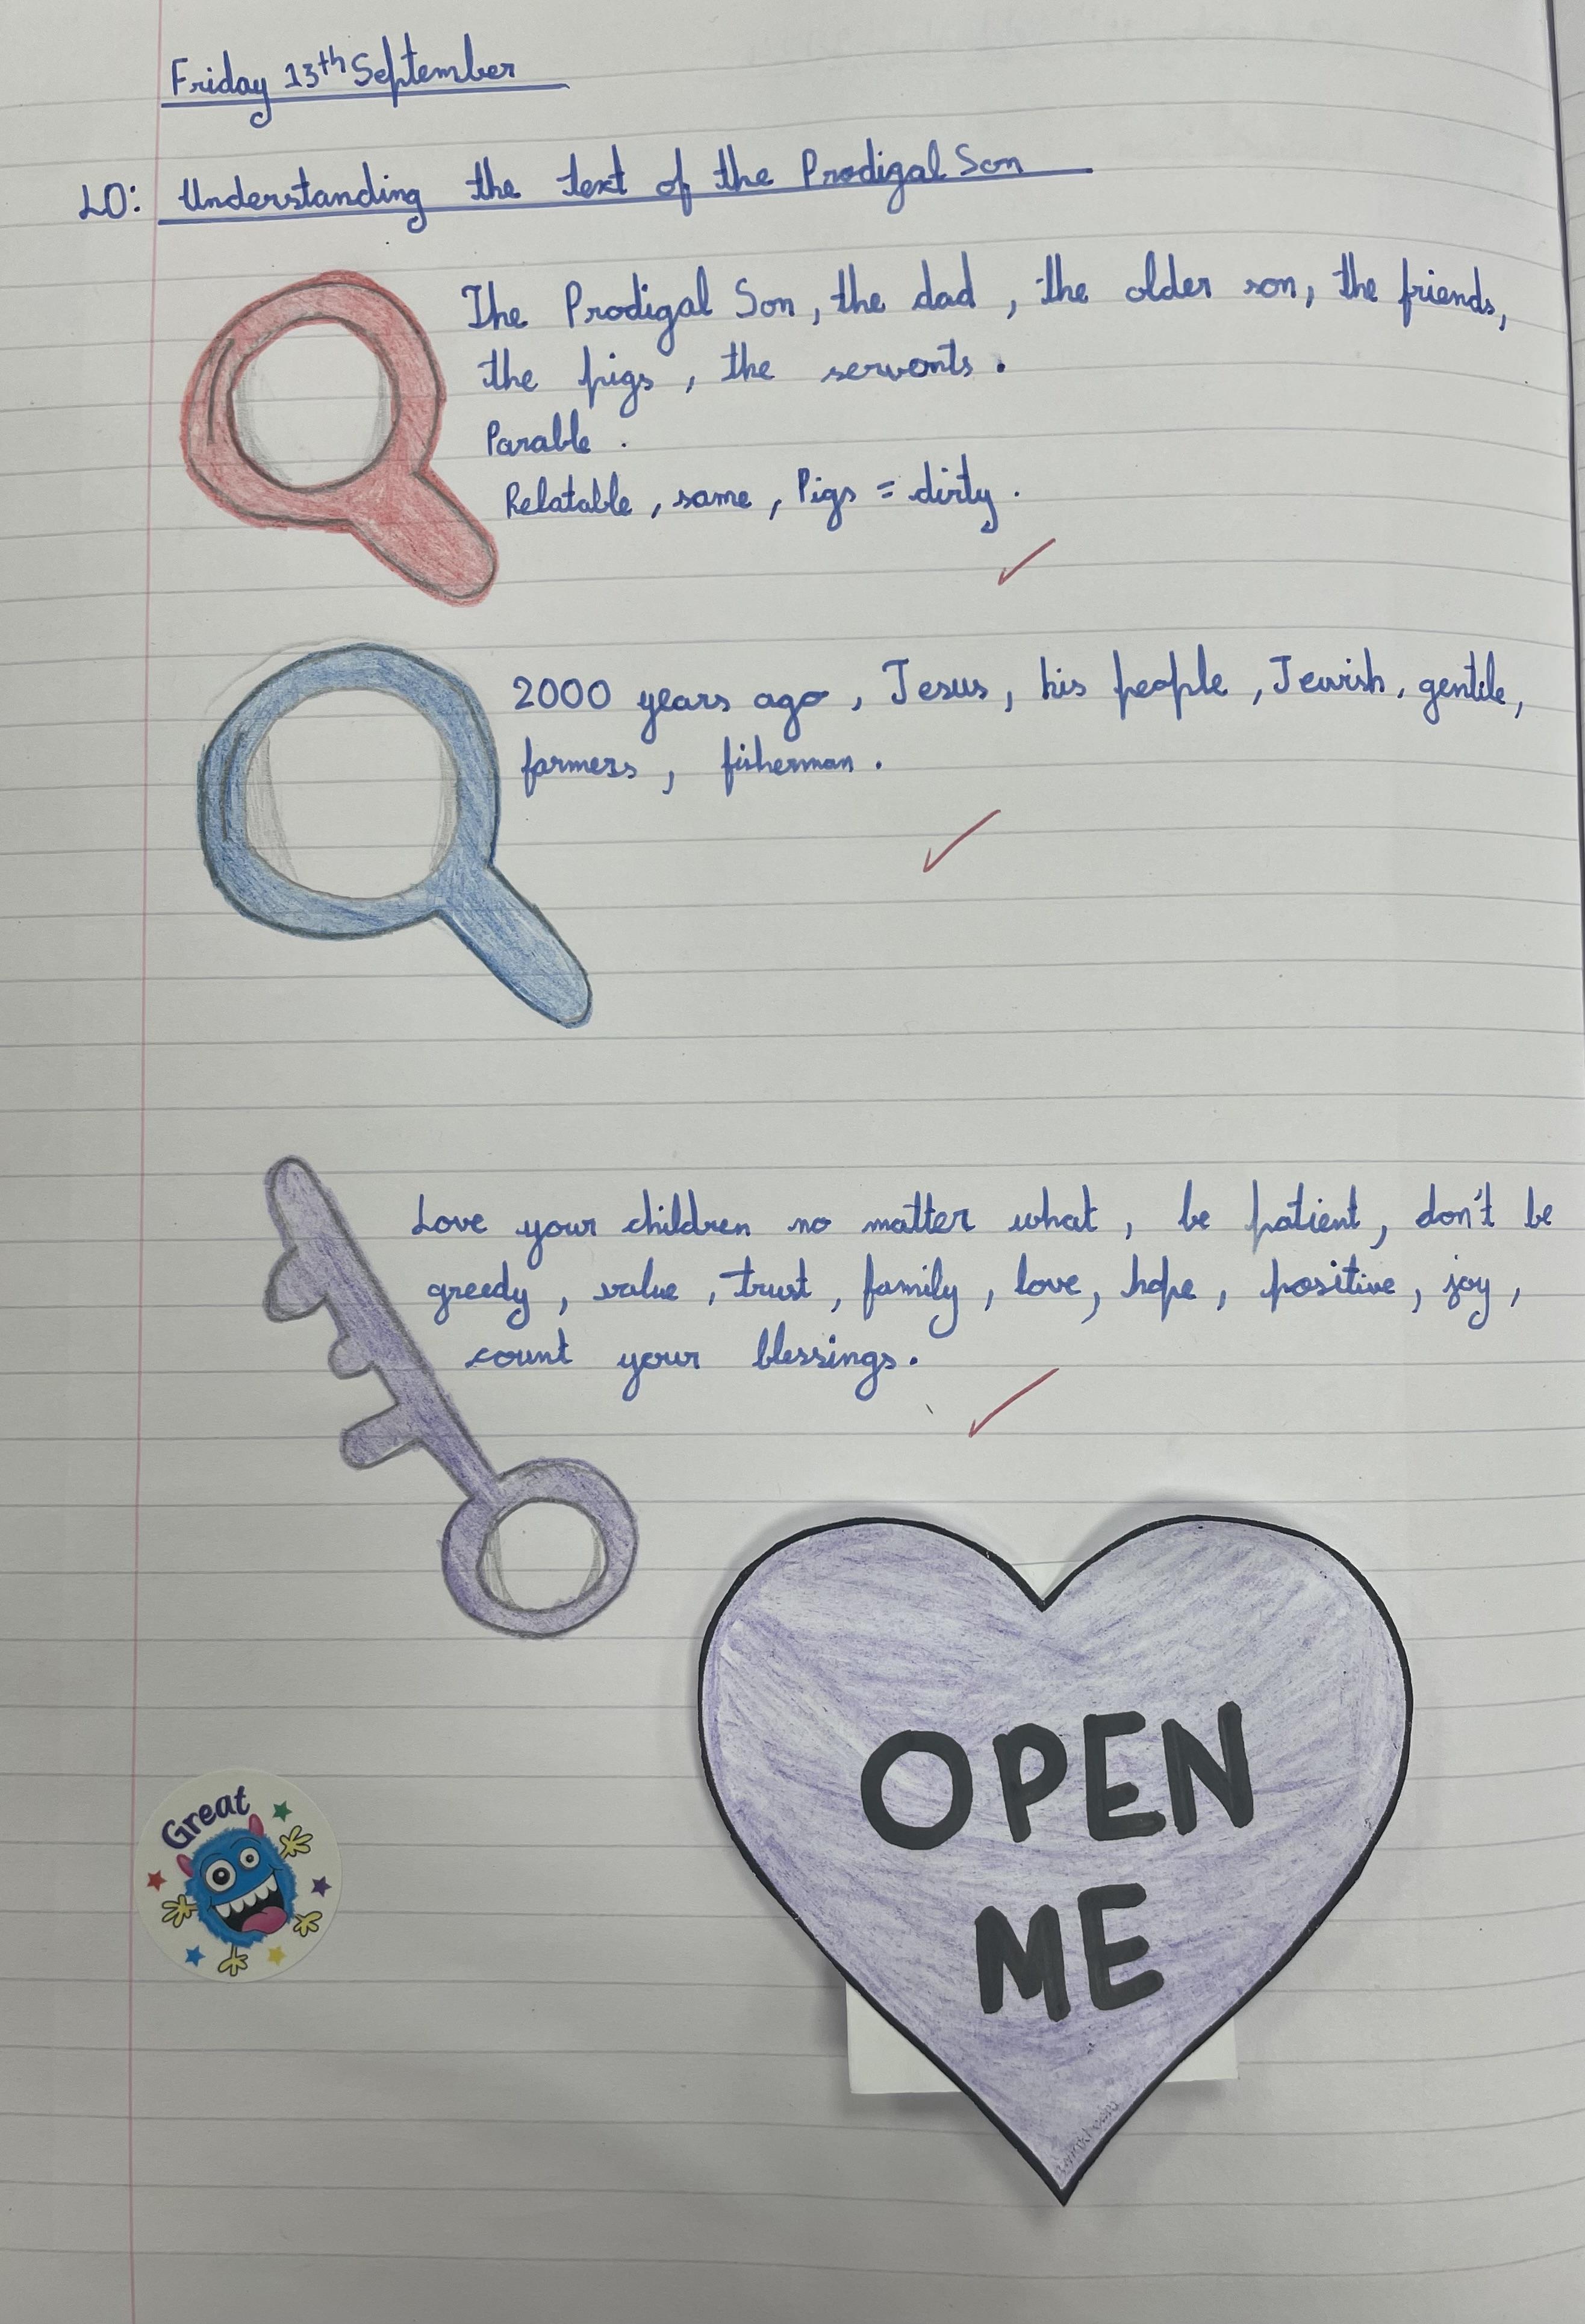 Friday 13th September
LO: Understanding the text of the Prodigal Son
The Prodigal Son, the dad, the older son, the friends,
the pigs, the servants.
Parable.
Relatable, same, Pigs = dirty.
2000 years ago, Jesus, his people, Jewish, gentile,
farmers, fisherman.
Love your children no matter what, be patient, don't be
greedy, value, trust, family, love, hope, positive, joy,
count your blessings.
OPEN
ME
Great